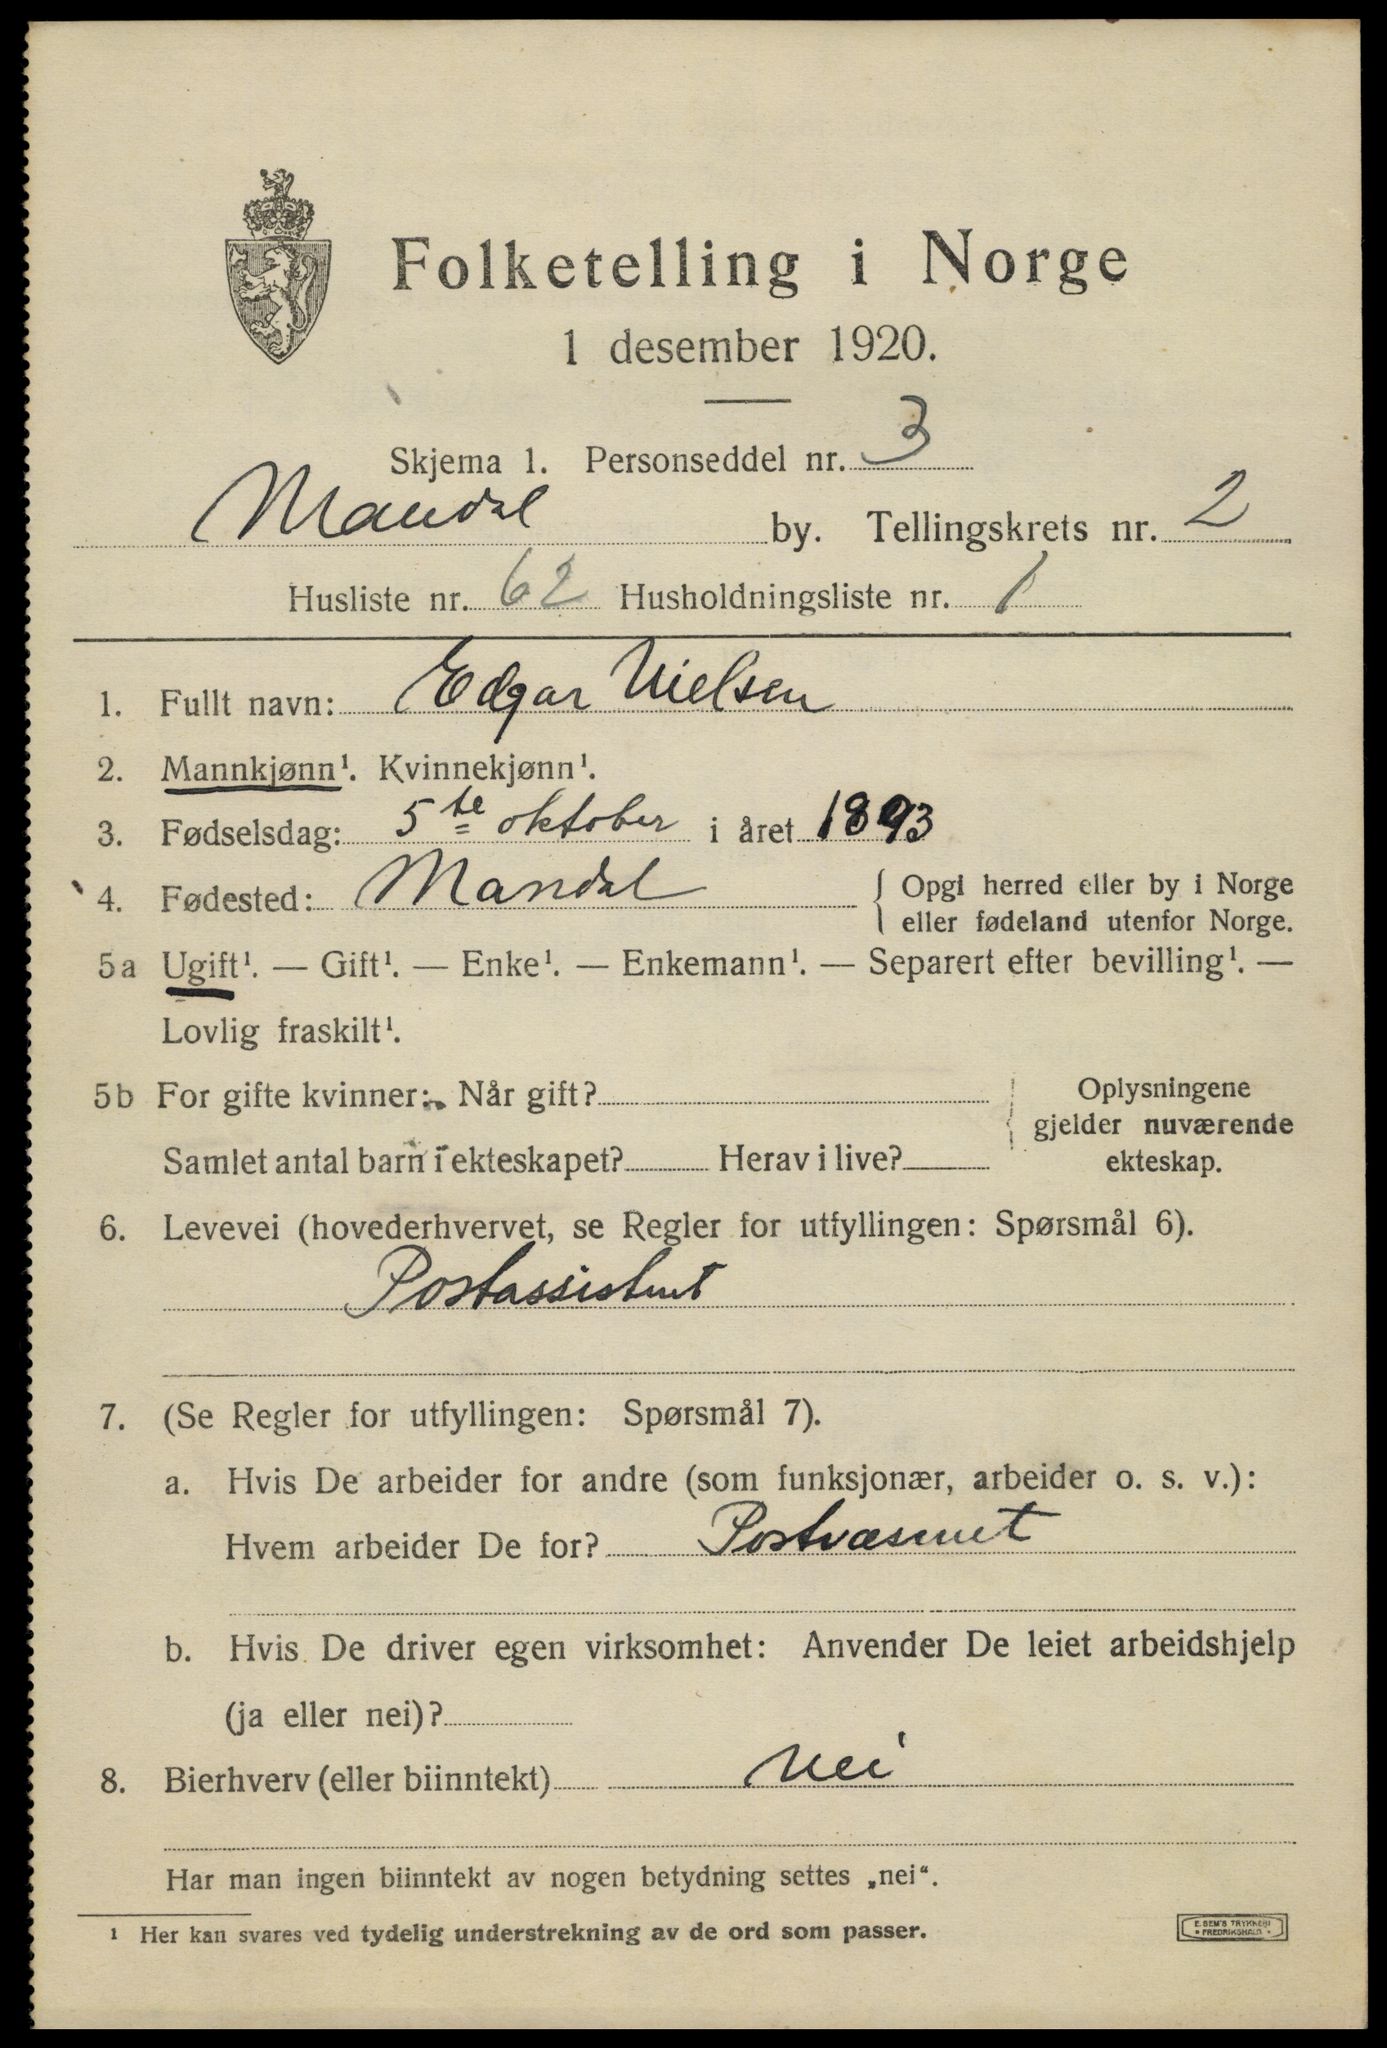 Folketelling i Norge
1 desember 1920.
Skjema 1. Personseddel nr. 3
Mandal by. Tellingskrets nr. 2
Husliste nr. 62 Husholdningsliste nr. 1
1. Fullt navn: Edgar Nielsen
2. Mannkjønn¹. Kvinnekjønn¹.
3. Fødselsdag: 5te oktober i året 1893
4. Fødested: Mandal { Opgi herred eller by i Norge
eller fødeland utenfor Norge.
5a Ugift¹. — Gift¹. — Enke¹. — Enkemann¹. — Separert efter bevilling¹. —
Lovlig fraskilt¹.
5b For gifte kvinner: Når gift? Oplysningene
gjelder nuværende
Samlet antal barn i ekteskapet? Herav i live? ekteskap.
6. Levevei (hovederhvervet, se Regler for utfyllingen: Spørsmål 6).
Postassistent
7. (Se Regler for utfyllingen: Spørsmål 7).
a. Hvis De arbeider for andre (som funksjonær, arbeider o. s. v.):
Hvem arbeider De for? Postvæsenet
b. Hvis De driver egen virksomhet: Anvender De leiet arbeidshjelp
(ja eller nei)?
8. Bierhverv (eller biinntekt) Nei
Har man ingen biinntekt av nogen betydning settes „nei“.
¹ Her kan svares ved tydelig understrekning av de ord som passer.
E. SEM'S TRYKKERI
• FREDRIKSHALD •